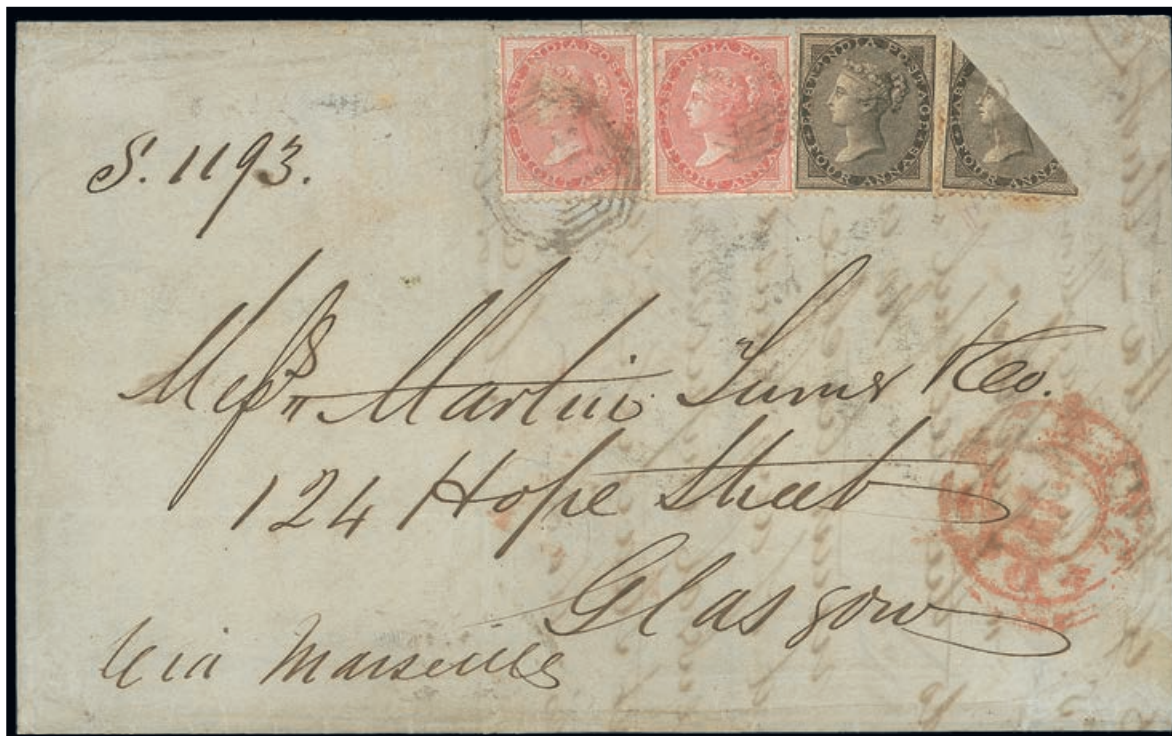 EAST INDIA POSTAGE
EIGHT ANNAS
EAST INDIA POSTAGE
EIGHT ANNAS
EAST INDIA POSTAGE
FOUR ANNAS
EAST
FOUR ANNA
S. 1193.
Messrs Martin Turner & Co.
124 Hope Street
Glasgow
Via Marseille